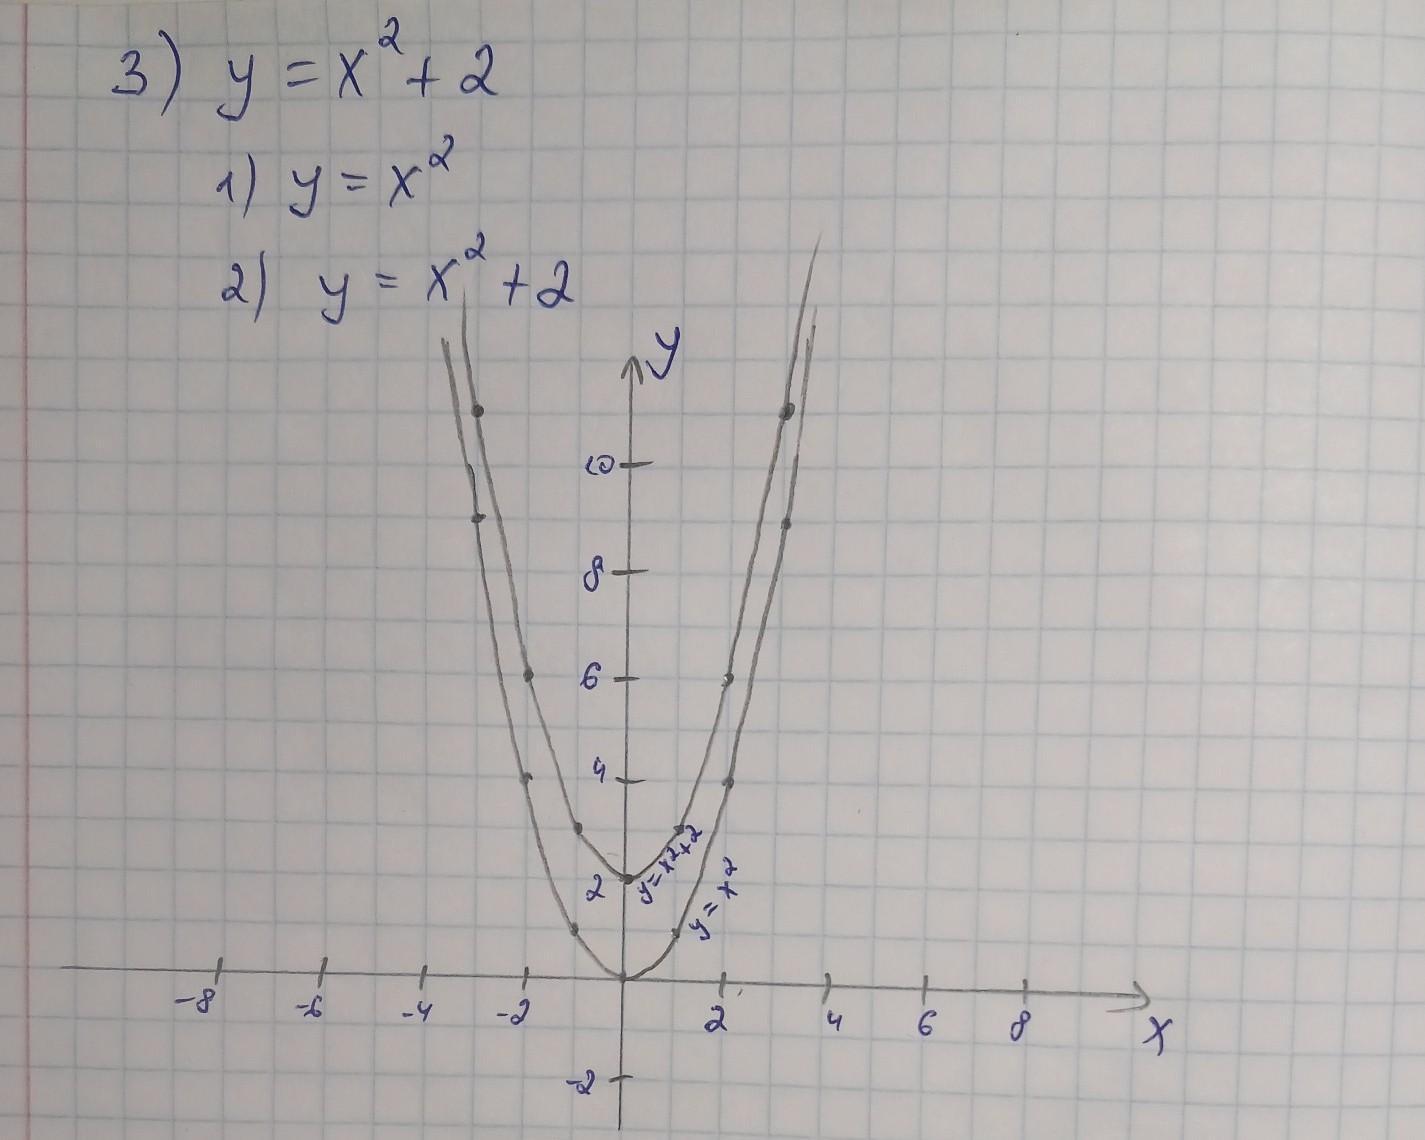 3) y = x² + 2
1) y = x²
2) y = x² + 2
y
10
8
6
4
2
y = x² + 2
y = x²
-8 -6 -4 -2 2 4 6 8 x
-2